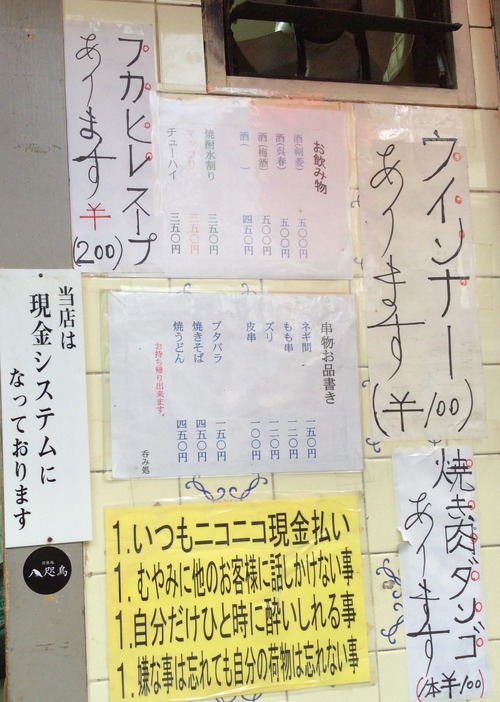 プカヒレスープ
あります
¥
(200)
お飲み物
酒(剣菱) 五〇〇円
酒(呉春) 五〇〇円
酒(梅酒) 五〇〇円
酒( ) 四五〇円
焼酎水割り 三五〇円
マッコリ 三五〇円
チューハイ 三五〇円
ウインナー
あります
(¥100)
当店は
現金システムに
なっております
串物お品書き
ネギ間 一五〇円
もも串 一二〇円
ズリ 一二〇円
皮串 一〇〇円
ブタバラ 一五〇円
焼きそば 四五〇円
焼うどん 四五〇円
お持ち帰り出来ます。
呑み処
焼き肉ダンゴ
あります
(1本¥100)
1.いつもニコニコ現金払い
1.むやみに他のお客様に話しかけない事
1.自分だけひと時に酔いしれる事
1.嫌な事は忘れても自分の荷物は忘れない事
八咫烏